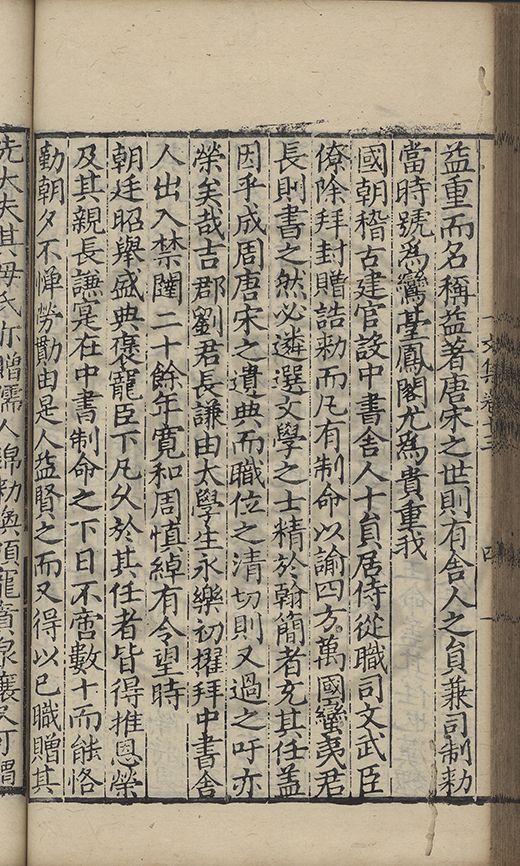 益重而名稱益著唐宋之世則有舍人之員兼司制勑
當時號為鸞臺鳳閣尤為貴重我
國朝稽古建官設中書舍人十員居侍從職司文武臣
僚除拜封贈誥勑而凡有制命以諭四方萬國蠻夷君
長則書之然必遴選文學之士精於翰簡者充其任盖
因乎成周唐宋之遺典而職位之清切則又過之吁亦
榮矣哉吉郡劉君長謙由太學生永樂初擢拜中書舍
人出入禁闥二十餘年寛和周慎綽有令望時
朝廷昭舉盛典褒寵臣下凡乆於其任者皆得推恩榮
及其親長謙寔在中書制命之下日不啻數十而能恪
勤朝夕不憚勞勩由是人益賢之而又得以已職贈其
先大夫其母氏亦贈孺人錦勑煥頒寵賁泉壤
文集卷十三
四